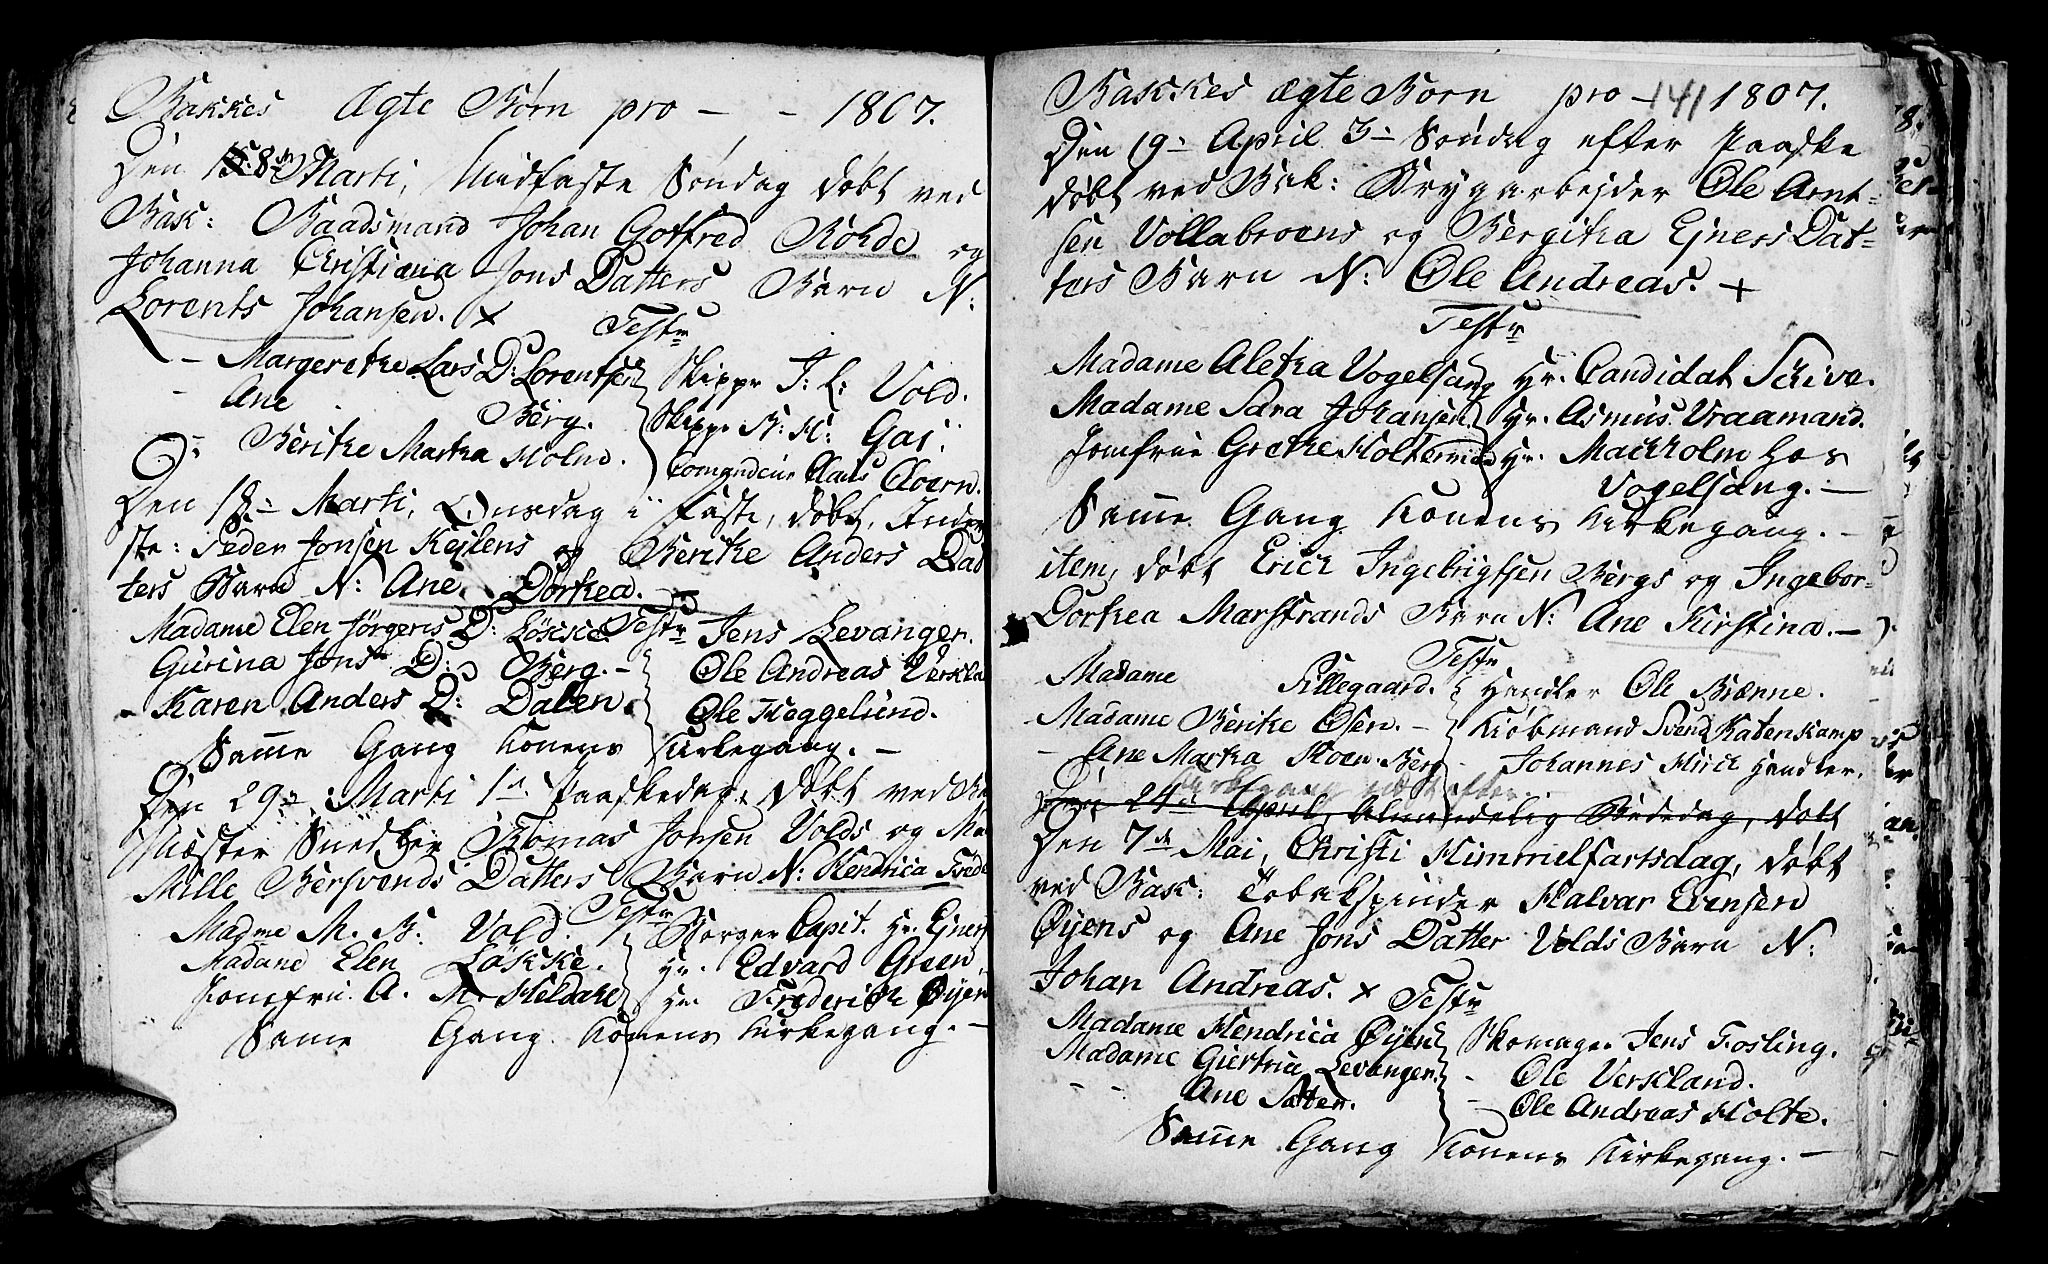 Bakkes Ægte Børn pro - - 1807.
Den 8de Marti, Midfaste Søndag døbt ved
Bak: Baadsmand Johan Gotfred Rohde og
Johanna Christiana Jons Datters Barn N:
Lorents Johansen. x
Testr
- Margerethe Lars D: Lorentsen Skippr J: L: Vold.
- Ane Berg. Skippr B: H: Gai:
D: Berithe Martha Holm. Comandeur Claus
Den 18- Marti, Onsdag i Faste, døbt, Inder
ste: Peder Jonsen Kejlens og Berithe Anders Dat
ters Barn N: Ane Dorthea. -
Testr
Madame Elen Jørgens D: Løkke. Jens Levanger.
Gurina Jons D: Berg. - Ole Andreas Verkla
- Karen Anders D: Dalen. Ole Heggelund.
Samme Gang Konens Kirkegang. -
Den 29- Marti 1ste Paaskedag, døbt ved Ba
Mæster Snedker Thomas Jonsen Volds og Ma
Mille Bersvends Datters Barn N: Hendrica Frede
Testr
Madme M. B. Vold. Borger Capit. Hr. Ejners
Madame Elen Løkke. Hr. Edvard Green
Jomfru. A. M. Heldahl Hr. Frederich Øyen
Same Gang Konens Kirkegang. -
Bakkes ægte Børn pro - 141 1807.
Den 19- April 3- Søndag efter Paaske
døbt ved Bak: Brygarbejder Ole Arnt-
sen Vollabroens og Bergitha Ejners Dat-
ters Barn N: Ole Andreas. +
Testr
Madame Aletha Vogelsang Hr. Candidat Schive.
Madame Sara Johansen Hr. Asmus Vraamand.
Jomfrue Grethe Holterman Hr. Mackholm hos
Vogelsang. -
Samme Gang Konens Kirkegang. -
item, døbt Erich Ingebrigtsen Bergs og Ingebor-
Dorthea Marstrands Barn N: Ane Kirstina. -
Testr
Madame Lillegaard. Handler Ole Brønne.
Madame Berithe Olsen. - Kiøbmand Svend Katenkamp
- Ane Martha Hoen Berg - Johannes Hirch Handler.
Kirkegang
Den 24de April, Almindelig Bededag, døbt
Den 7de Mai, Christi Himmelfartsdag, døbt
ved Bak: Tobakspinder Halvar Evensen
Øyens og Ane Jons Datter Volds Barn N:
Johan Andreas. x Testr
Madame Hendrica Øyen Skomager Jens Fosling.
Madame Giertrue Levanger. - Ole Verkland.
- - Ane Satter. - Ole Andreas Holte.
Samme Gang Konens Kirkegang. -